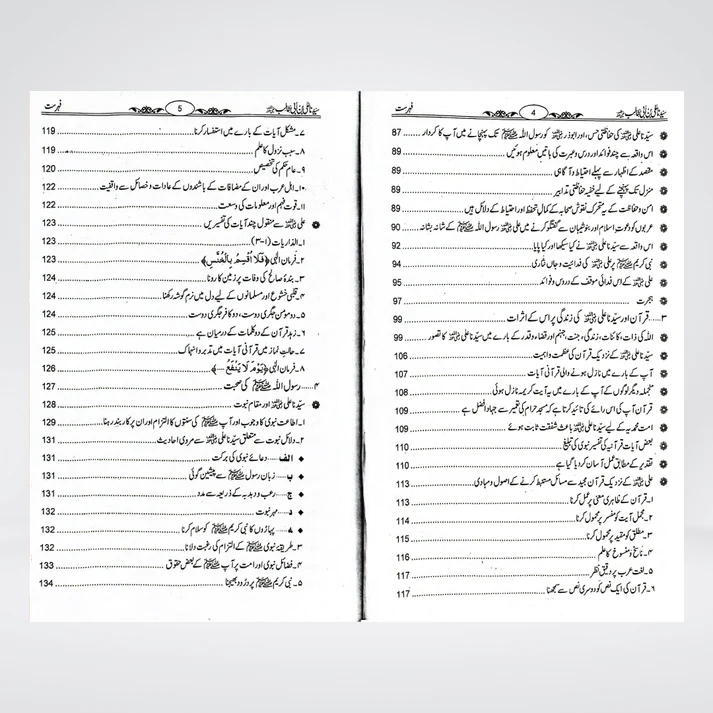 سیدنا علی بن ابی طالب رضی اللہ عنہ 4 فہرست
سیدنا علی رضی اللہ عنہ کی حفاظتی حس، اور ابوذر رضی اللہ عنہ کو رسول اللہ ﷺ تک پہچانے میں آپ کا کردار ...... 87
اس واقعہ سے چند فوائد اور درس وعبرت کی باتیں معلوم ہوئیں ...... 89
مقصد کے اظہار سے پہلے احتیاط و آگاہی ...... 89
منزل تک پہنچنے کے لیے خفیہ حفاظتی تدابیر ...... 89
امن وحفاظت کے یہ متحرک نقوش صحابہ کے کمالِ تحفظ اور احتیاط کے دلائل ہیں ...... 89
عربوں کو دعوت اسلام اور بنوشیبان سے گفتگو کرنے میں علی رضی اللہ عنہ رسول اللہ ﷺ کے شانہ بشانہ ...... 90
اس واقعہ سے سیدنا علی رضی اللہ عنہ نے کیا سیکھا اور کیا پایا ...... 92
نبی کریم ﷺ پر علی رضی اللہ عنہ کی فدائیت وجاں نثاری ...... 94
علی رضی اللہ عنہ کے اس فدائی موقف کے دروس وفوائد ...... 95
ہجرت ...... 97
۳۔...... قرآن اور سیدنا علی رضی اللہ عنہ کی زندگی پر اس کے اثرات ...... 99
اللہ کی ذات، کائنات، زندگی، جنت، جہنم اور قضاء وقدر کے بارے میں سیدنا علی رضی اللہ عنہ کا تصور ...... 99
سیدنا علی رضی اللہ عنہ کے نزدیک قرآن کی عظمت واہمیت ...... 106
آپ کے بارے میں نازل ہونے والی قرآنی آیات ...... 107
منجملہ دیگر لوگوں کے آپ کے بارے میں یہ آیت کریمہ نازل ہوئی ...... 108
قرآن آپ کی اس رائے کی تائید کرتا ہے کہ مسجد حرام کی تعمیر سے جہاد افضل ہے ...... 109
امت محمدیہ کے لیے سیدنا علی رضی اللہ عنہ باعث شفقت ثابت ہوئے ...... 109
بعض آیات قرآنیہ کی تفسیر نبوی کی تبلیغ ...... 110
تقدیر کے مطابق عمل آسان کردیا گیا ہے ...... 110
علی رضی اللہ عنہ کے نزدیک قرآن مجید سے مسائل مستنبط کرنے کے اصول ومبادی ...... 113
۱۔ قرآن کے ظاہری معنی پر عمل کرنا ...... 113
۲۔ مجمل آیت کو مفسر پر محمول کرنا ...... 114
۳۔ مطلق کو مقید پر محمول کرنا ...... 115
۴۔ ناسخ و منسوخ کا علم ...... 116
۵۔ لغت عرب پر دقیق نظر ...... 117
۶۔ قرآن کی ایک نص کو دوسری نص سے سمجھنا ...... 117
سیدنا علی بن ابی طالب رضی اللہ عنہ 5 فہرست
۷۔ مشکل آیات کے بارے میں استفسار کرنا ...... 119
۸۔ سبب نزول کا علم ...... 119
۹۔ عام حکم کی تخصیص ...... 120
۱۰۔ اہل عرب اور ان کے مضافات کے باشندوں کے عادات وخصائل سے واقفیت ...... 122
۱۱۔ قوت فہم اور معلومات کی وسعت ...... 122
علی رضی اللہ عنہ سے منقول چند آیات کی تفسیریں ...... 123
۱۔ الذاریات (۱-۳) ...... 123
۲۔ فرمان الٰہی ﴿فَلَا أُقْسِمُ بِالْخُنَّسِ﴾ ...... 123
۳۔ بندۂ صالح کی وفات پر زمین کا رونا ...... 124
۴۔ قلبی خشوع اور مسلمانوں کے لیے دل میں نرم گوشہ رکھنا ...... 124
۵۔ دو مومن جگری دوست، دو کافر جگری دوست ...... 124
۶۔ زہد قرآن کے دو کلمات کے درمیان ہے ...... 125
۷۔ حالتِ نماز میں قرآنی آیات میں تدبر وانہماک ...... 125
۸۔ فرمان الٰہی ﴿يَوْمَ لَا يَنْفَعُ ......﴾ ...... 126
۴۔...... رسول اللہ ﷺ کی صحبت ...... 127
سیدنا علی رضی اللہ عنہ اور مقام نبوت ...... 128
۱۔ اطاعت نبوی کا وجوب اور آپ ﷺ کی سنتوں کا التزام اور ان پر کاربند رہنا ...... 129
۲۔ دلائل نبوت سے متعلق سیدنا علی رضی اللہ عنہ سے مروی احادیث ...... 131
الف...... دعائے نبوی کی برکت ...... 131
ب...... زبان رسول ﷺ سے پیشین گوئی ...... 131
ج...... رعب ودبدبہ کے ذریعہ سے مدد ...... 131
د...... مہر نبوت ...... 132
ھ...... پہاڑوں کا نبی کریم ﷺ کو سلام کرنا ...... 132
۳۔ طریقۂ نبوی ﷺ کے التزام کی رغبت دلانا ...... 132
۴۔ فضائل نبوی اور امت پر آپ ﷺ کے بعض حقوق ...... 133
۵۔ نبی کریم ﷺ پر درود بھیجنا ...... 134